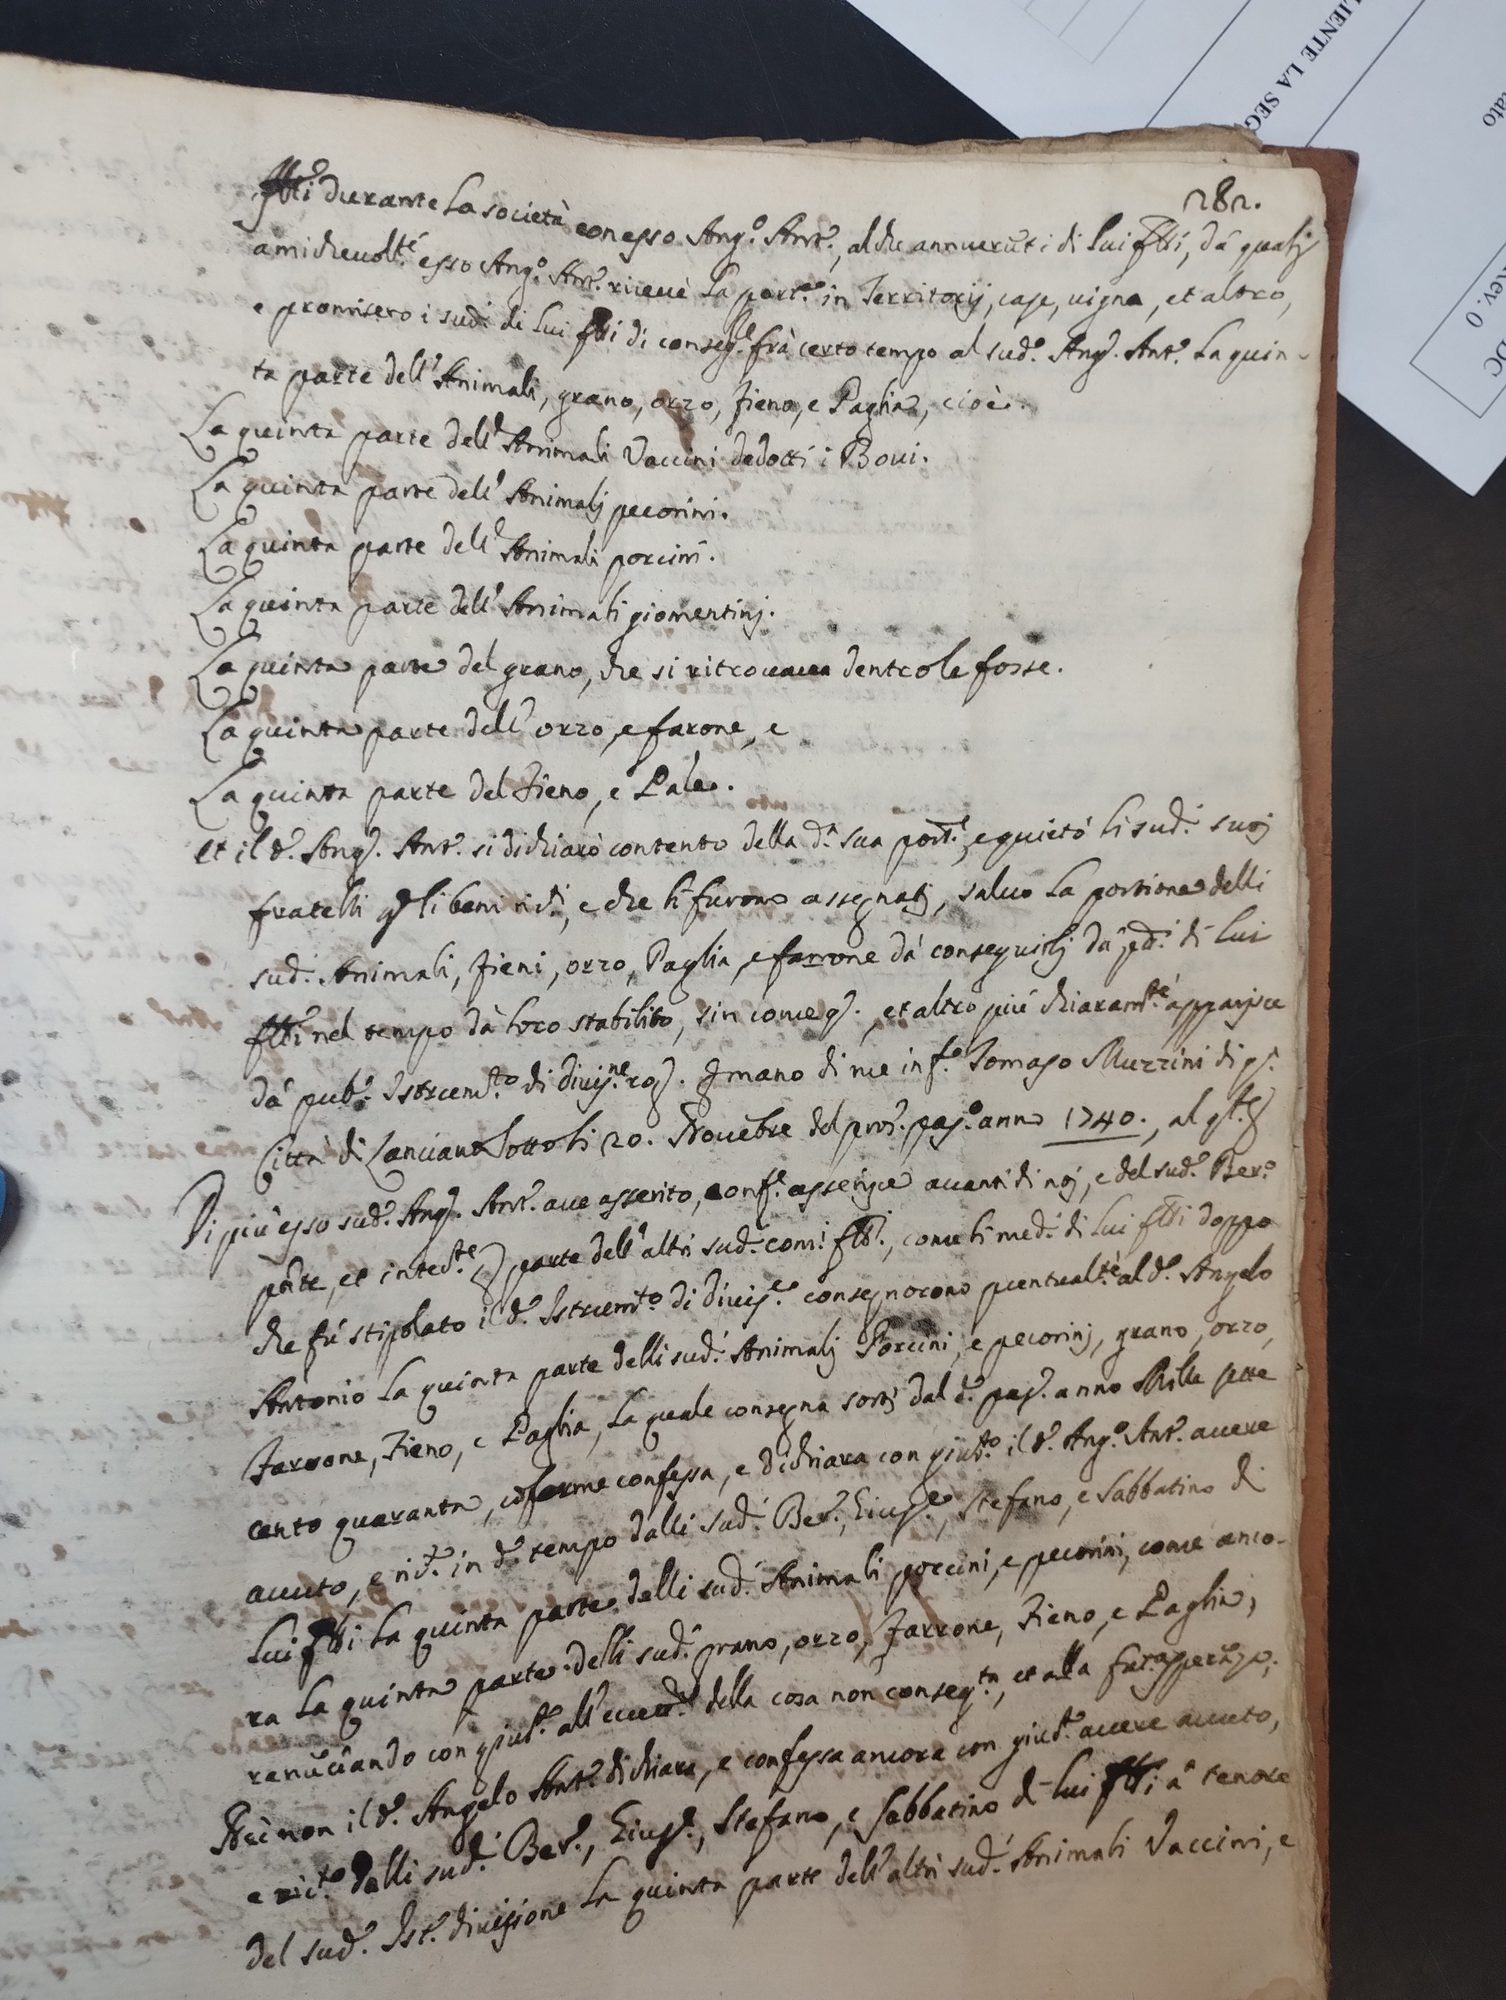 LIENTE LA SEG
ato
ev. 0
DC
282.
ffti durante La società con esso Ang.º Ant.º, al che annueruti di lui ffti, dà quali
amichevolt.e esso Ang.º Ant.º riceuè La part.e in Territorij, case, uigna, et altro,
e promisero i sud.i di lui ffti di conseg.e frà certo tempo al sud.º Ang.º Ant.º La quin-
ta parte dell'Animali, grano, orzo, fieno, e Paglia, cioè.
La quinta parte dell'Animali Vaccini dedotti i Boui.
La quinta parte dell'Animalj pecorini.
La quinta parte dell'Animali porcini.
La quinta parte dell'Animali giomentinj.
La quinta parte del grano, che si ritrouaua dentro le fosse.
La quinta parte dell'orzo, e farone, e
La quinta parte del fieno, e Pale.
et il d.º Ang.º Ant.º si dichiarò contento della d.a sua port.e, e quietò li sud.i suoj
fratelli p li beni rid.i, e che li furono assegnatj, saluo La portione delli
sud.i Animali, fieni, orzo, Paglia, e farrone dà conseguirsj dà pd.i di lui
ffti nel tempo dà loro stabilito, sin come q.º, et altro più chiaram.te apparisce
dà pub.º Istrum.to di diuis.ne rog.º p mano di me inf.º Tomaso Muzzini di q.a
Città di Lanciano sotto li 20. Nouebre del pros.º pas.º anno 1740., al q.le
Di più esso sud.º Ang.º Ant.º aue asserito, conf.e asserisce auanti di noj, e del sud.º Ber.º
pnte, et inted.te p parte dell'altri sud.i comi ffti, come li med.i di lui ffti doppo
che fù stipolato il d.º Istrum.to di diuis.e consegnorono puntualt.e al d.º Angelo
Antonio La quinta parte delli sud.i Animalj Porcini, e pecorinj, grano, orzo,
farrone, fieno, e Paglia, La quale consegna sortj dal d.º pas.º anno Mille sette
cento quaranta, coforme confessa, e dichiara con giur.to il d.º Ang.º Ant.º auere
auuto, e rid.º in d.º tempo dalli sud.i Ber.º, Gius.e, Stefano, e Sabbatino di
Lui ffti La quinta parte delli sud.i Animali porcini, e pecorini, come anco-
ra La quinta parte delli sud.i grano, orzo, farrone, fieno, e Paglia,
renuciando con giur.º all'ecced.e della cosa non conseg.ta, et alla fut.a
Nec non il d.º Angelo Ant.º dichiara, e confessa ancora con giur.º auere auuto,
e ric.to dalli sud.i Ber.º, Gius.e, Stefano, e Sabbatino di lui ffti à tenore
del sud.º Ist.º diuisione La quinta parte dell'altri sud.i Animali Vaccini, e